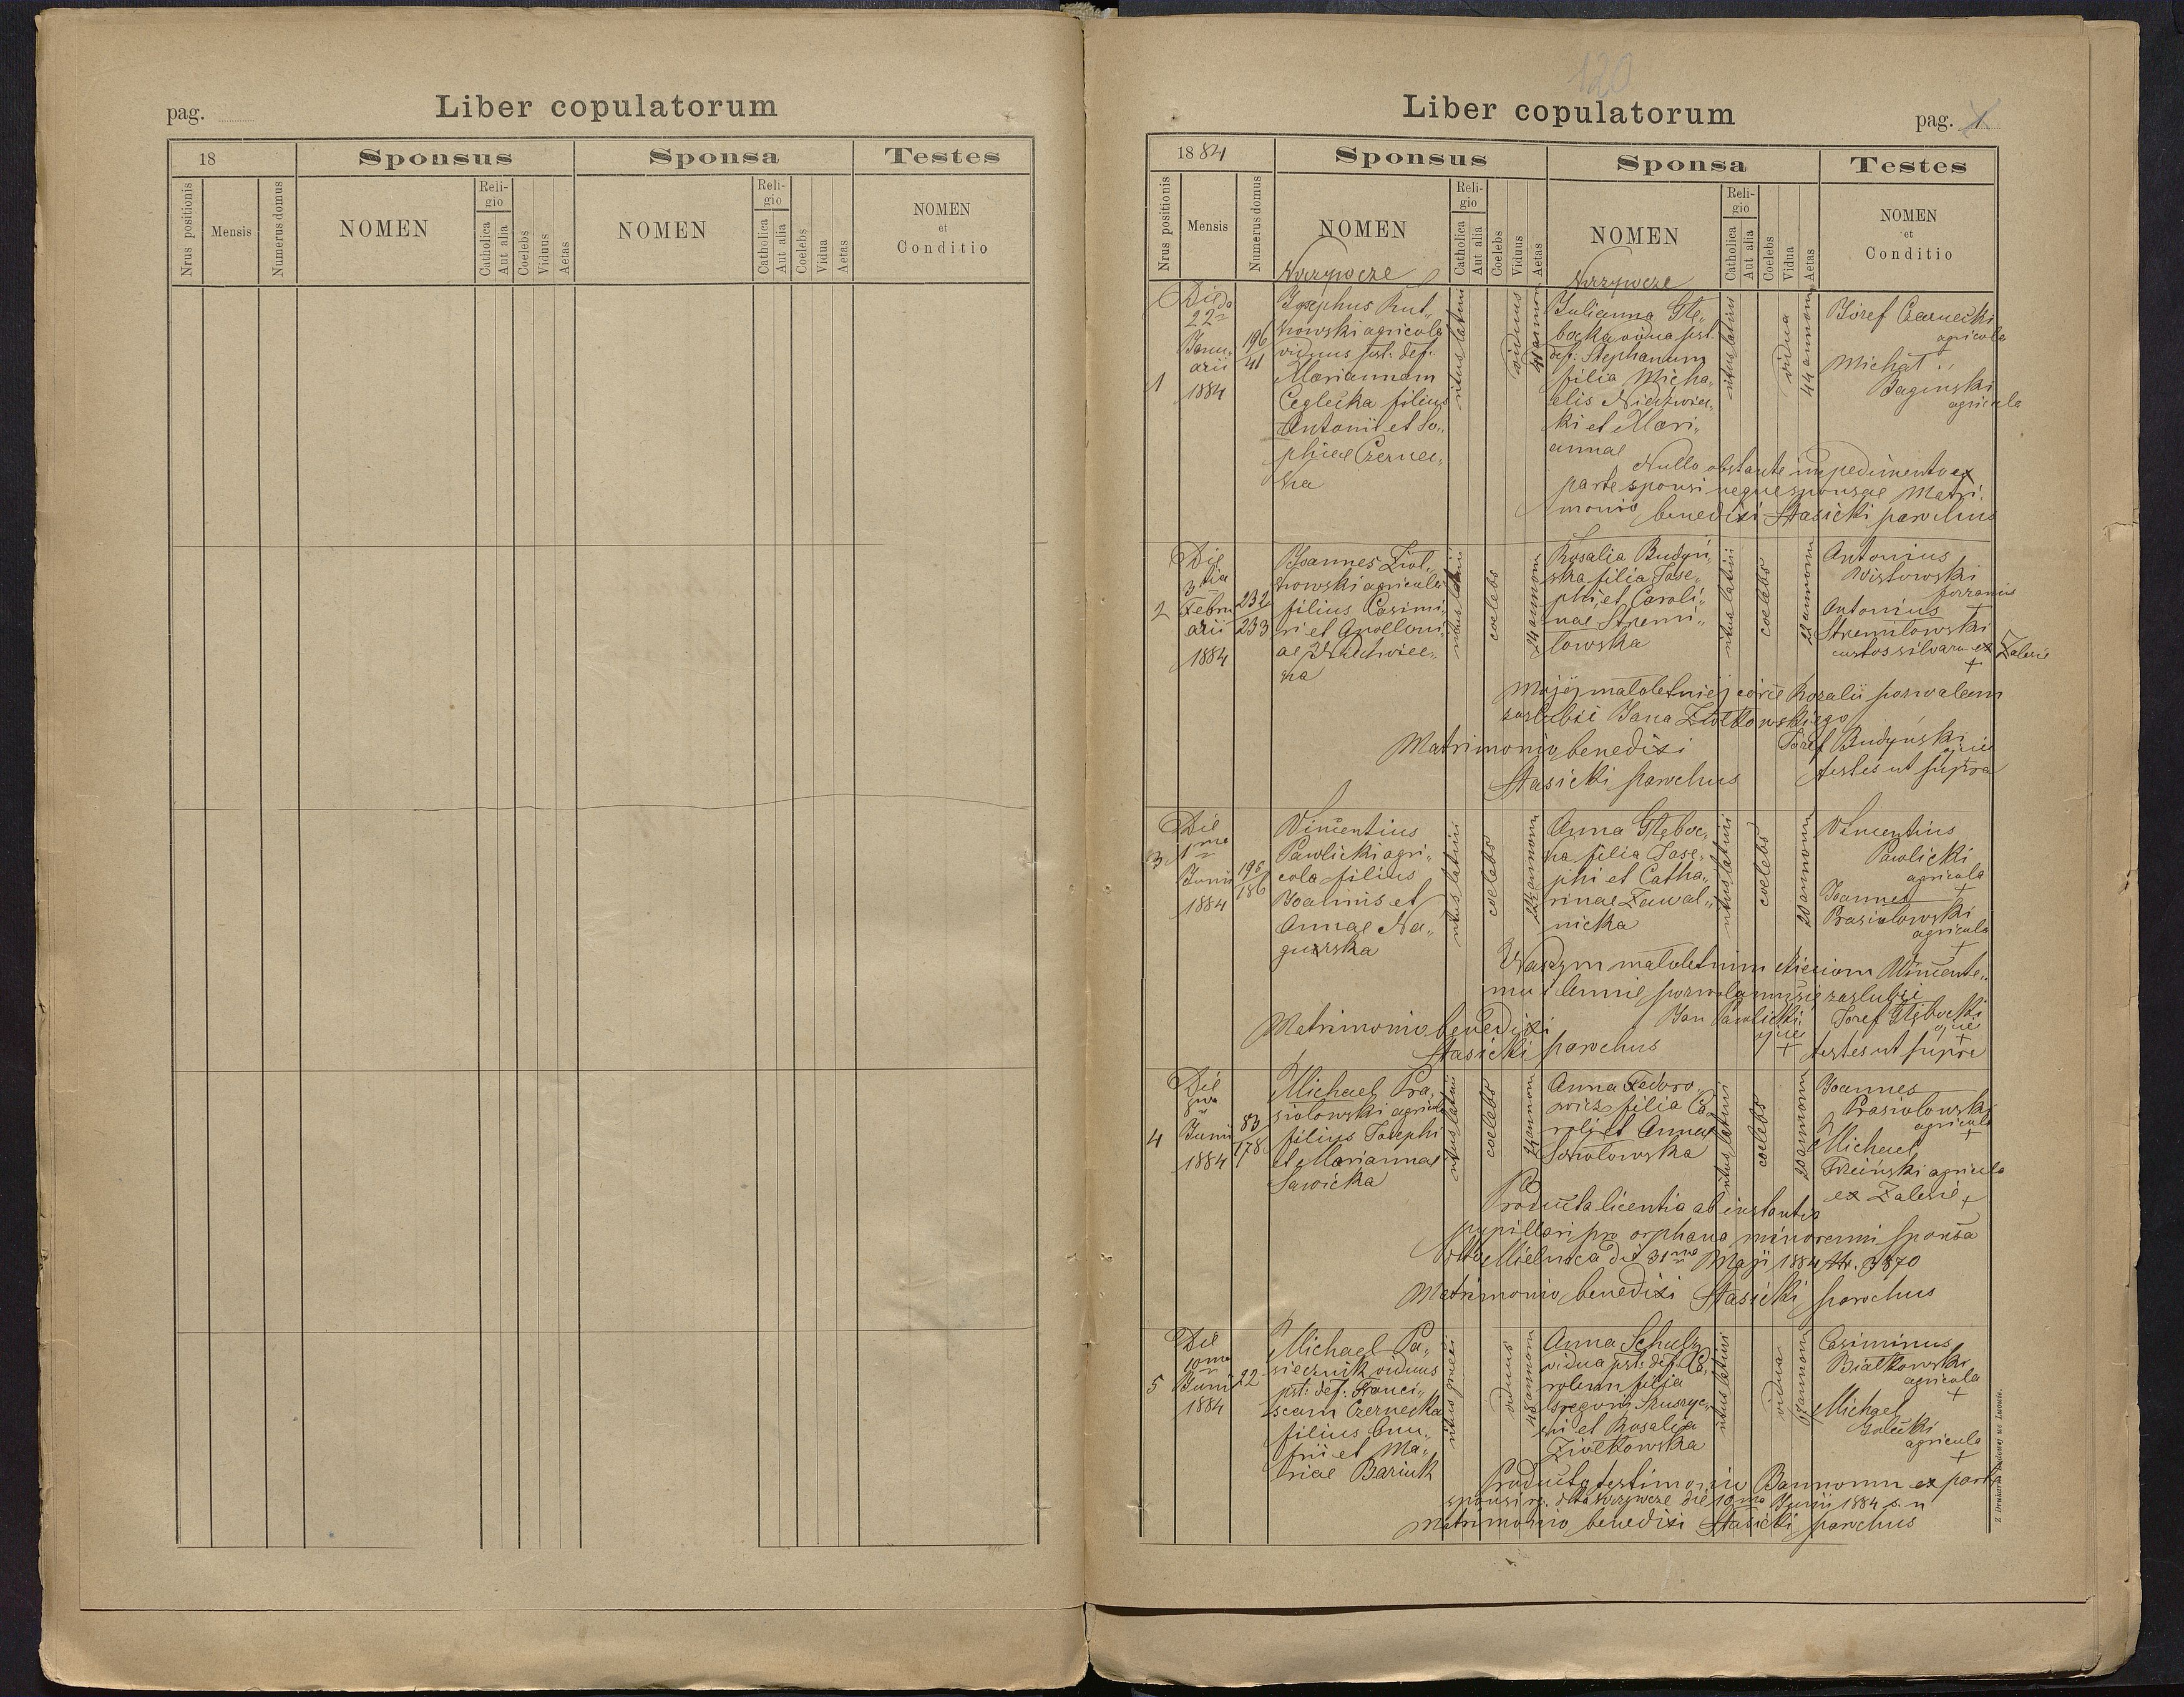 pag.
Liber copulatorum
18
Sponsus
Sponsa
Testes
Nrus positionis
Mensis
Numerus domus
NOMEN
Reli-
gio
Catholica
Aut alia
Coelebs
Viduus
Aetas
NOMEN
Reli-
gio
Catholica
Aut alia
Coelebs
Vidua
Aetas
NOMEN
et
Conditio
120
Liber copulatorum
pag. 1
1884
Sponsus
Sponsa
Testes
Nrus positionis
Mensis
Numerus domus
NOMEN
Krzywcze
Reli-
gio
Catholica
Aut alia
Coelebs
Viduus
Aetas
NOMEN
Krzywcze
Reli-
gio
Catholica
Aut alia
Coelebs
Vidua
Aetas
NOMEN
et
Conditio
1
Die
22da
Janu„
arii
1884
196
41
Josephus Rut„
kowski agricola
viduus pst. def.
Mariannam
Ceglecka filius
Antonii et So„
phiae Czernec„
ka
ritus latini
viduus
41 annorum
Julianna Głę„
bocka vidua pst.
def. Stephanum
filia Micha„
elis Niedzwiec„
ki et Mari„
annae
ritus latini
vidua
44 annorum
Józef Czarnecki
agricola
Michał
Bagiński
agricola
Nullo obstante impedimento ex
parte sponsi neque sponsae Matri„
monio benedixi Stasicki parochus
2
Die
3tia
Febru
arii
1884
232
233
Joannes Ziół„
kowski agricola
filius Casimi„
ri et Apolloni„
ae
ka
ritus latini
coelebs
24 annorum
Rosalia Budyń„
ska filia Jose„
phi et Caroli„
nae Stremi„
łowska
ritus latini
coelebs
22 annorum
Antonius
Wisłowski
+
Antonius
Stremiłowski
custos silvarum ex Zalesie
+
Mojéj małoletniej córce Rozalii pozwalam
zaślubić Jana Ziółkowskiego
Józef Budyński
ojciec
Matrimonio benedixi
testes ut supra
Stasicki parochus
3
Die
1ma
Junii
1884
198
186
Vincentius
Pawlicki agri„
cola filius
Joannis et
Annae Na„
gurska
ritus latini
coelebs
22 annorum
Anna Głęboc„
ka filia Jose„
phi et Catha„
rinae Zawal„
nicka
ritus latini
coelebs
20 annorum
Vincentius
Pawlicki
agricola
+
Joannes
Prasiołowski
agricola
+
Naszym małoletnim dzieciom Wincente„
mu i Annie pozwalamy się zaślubić
Jan Pawlicki
ojciec
+
Józef Głębocki
ojciec
+
Matrimonio benedixi
Stasicki parochus
testes ut supra
4
Die
8va
Junii
1884
83
178
Michael Pra„
siołowski agricola
filius Josephi
et Mariannae
Sawicka
ritus latini
coelebs
24 annorum
Anna Fedoro„
wicz filia Ca„
roli et Annae
Sokołowska
ritus latini
coelebs
20 annorum
Joannes
Prasiołowski
agricola
+
Michael
Trzciński agricola
ex Zalesie +
Producta licentia ab instantia
pupillari pro orphana minorenni sponsa
ddto Mielnica die 31ma Maji 1884 Nr. 3870
Matrimonio benedixi Stasicki parochus
5
Die
10ma
Junii
1884
22
Michael Pa„
siecznik viduus
pst: def. Franci„
scam Czernecka
filius Onu„
frii et Ma„
riae Bariuk
ritus graeci
viduus
48 annorum
Anna Schulz
vidua pst: def. Ca„
rolum filia
Gregorii Kuszyc„
ki et Rosalia
Ziółkowska
ritus latini
vidua
annorum
Casimirus
Białkowski
agricola
+
Michael
Golecki
agricola
+
Producto testimonio Bannorum ex parte
sponsi ddto Krzywcze die 10ma Junii 1884 s. n
Matrimonio benedixi Stasicki parochus
Z Drukarni Ludowej we Lwowie.